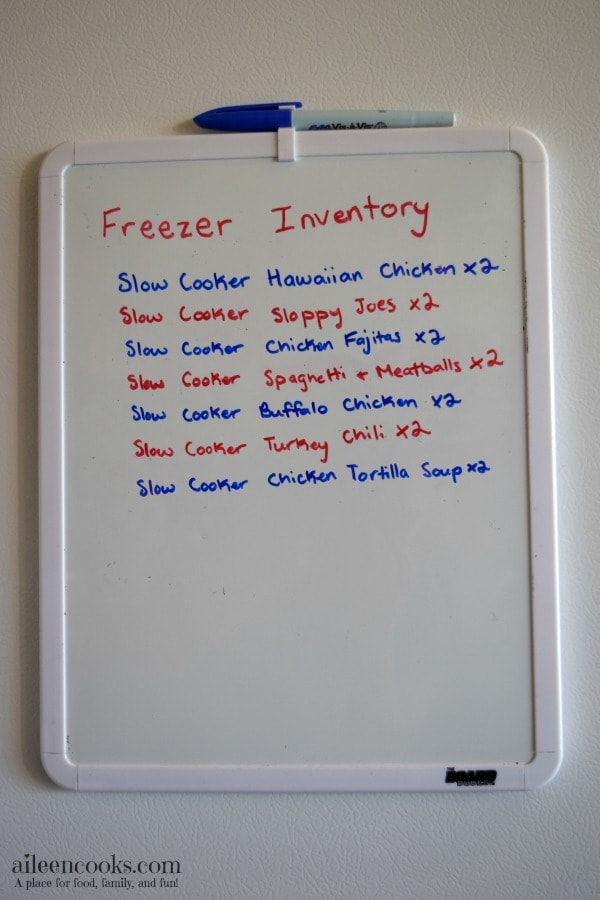 Vis-à-Vis
Freezer Inventory
Slow Cooker Hawaiian Chicken x2
Slow Cooker Sloppy Joes x2
Slow Cooker Chicken Fajitas x2
Slow Cooker Spaghetti + Meatballs x2
Slow Cooker Buffalo Chicken x2
Slow Cooker Turkey Chili x2
Slow Cooker Chicken Tortilla Soup x2
THE
BOARD
aileencooks.com
A place for food, family, and fun!